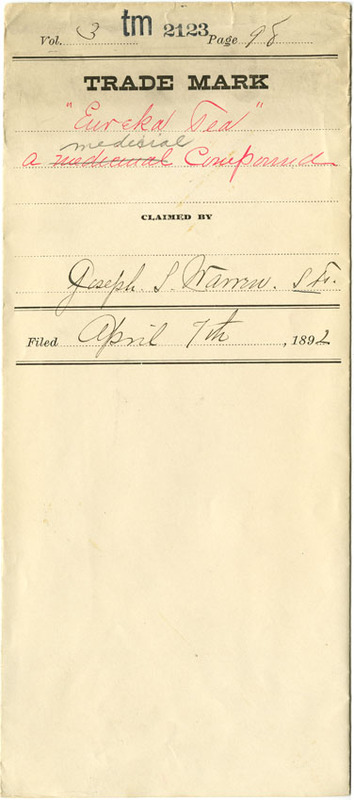 Vol. 3 tm 2123 Page 98
TRADE MARK
"Eureka Tea"
medecial
a medecinal Compound
CLAIMED BY
Joseph. S. Warren. S F.
Filed April 7th, 1892